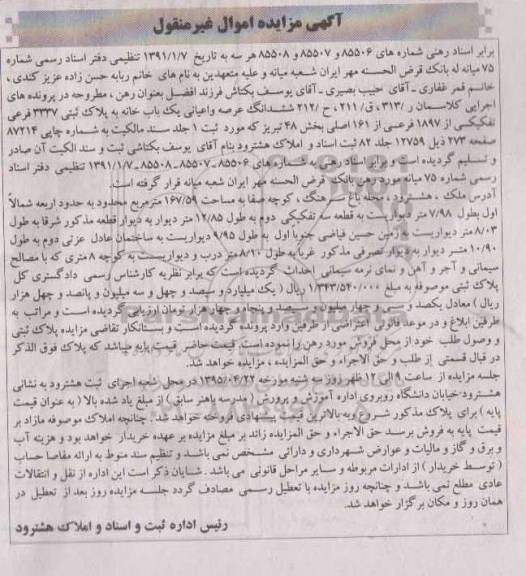 آگهی مزایده اموال غیرمنقول
برابر اسناد رهنی شماره های ۸۵۵۰۶ و ۸۵۵۰۷ و ۸۵۵۰۸ هر سه به تاریخ ۱۳۹۱/۱/۷ تنظیمی دفتر اسناد رسمی شماره
۷۵ میانه له بانک قرض الحسنه مهر ایران شعبه میانه و علیه متعهدین به نام های خانم ربابه حسن زاده عزیز کندی ،
خانم قمر غفاری ـ آقای حبیب بصیری ـ آقای یوسف یکتاش فرزند افضل بعنوان رهن ، مطروحه در پرونده های
اجرایی کلاسمان ر /۳۱۳ ، ق/ ۲۱۱ ، ح /۲۱۲ ششدانگ عرصه واعیانی یک باب خانه به پلاک ثبتی ۳۳۳۷ فرعی
تفکیکی از ۱۸۹۷ فرعی از ۱۶۱ اصلی بخش ۴۸ تبریز که مورد ثبت ۱ جلد سند مالکیت به شماره چاپی ۸۷۲۱۴
صفحه ۲۷۳ ذیل ۱۲۷۵۹ جلد ۸۲ ثبت اسناد و املاک هشترود بنام آقای یوسف یکتاشی ثبت و سند الکیت آن صادر
و تسلیم گردیده است و برابر اسناد رهنی به شماره های ۸۵۵۰۶ ـ ۸۵۵۰۷ ـ ۸۵۵۰۸ ـ ۱۳۹۱/۱/۷ تنظیمی دفتر اسناد
رسمی شماره ۷۵ میانه مورد رهن بانک قرض الحسنه مهر ایران شعبه میانه قرار گرفته است.
آدرس ملک ، هشترود ، محله باغ سرهنگ ، کوچه صفا به مساحت ۱۶۷/۵۹ مترمربع محدود به حدود اربعه شمالاً
اول بطول ۷/۹۸ متر دیواریست به قطعه سه تفکیکی دوم به طول ۱۲/۸۵ متر دیوار به دیوار قطعه مذکور شرقا به طول
۸/۰۳ متر دیواریست به زمین حسین فیاضی جنوبا اول به طول ۹/۹۵ دیواریست به ساختمان عادل عزتی دوم به طول
۱۰/۹۰ متر دیوار به دیوار تصرفی مذکور غربا به طول ۸/۱۰ متر درب و دیواریست به کوچه ۸ متری که با مصالح
سیمانی و آجر و آهن و نمای نرمه سیمانی احداث گردیده است که برابر نظریه کارشناس رسمی دادگستری کل
پلاک ثبتی موصوفه به مبلغ ۱/۳۴۳/۵۴۰/۰۰۰ ریال ( یک میلیارد و سیصد و چهل و سه میلیون و پانصد و چهل هزار
ریال ) معادل یکصد و سی و چهار میلیون و سیصد و پنجاه و چهار هزار تومان ارزیابی گردیده است و مراتب به
طرفین ابلاغ و در موعد قانونی اعتراضی از طرفین وارد پرونده گردیده است و بستانکار تقاضی مزایده پلاک ثبتی
و وصول طلب خود از محل فروش مورد رهن را نموده است. قیمت حاضر قیمت پایه میباشد که پلاک فوق الذکر
در قبال قسمتی از طلب و حق الاجراء و حق المزایده ، مزایده خواهد شد.
جلسه مزایده از ساعت ۹ الی ۱۲ ظهر روز سه شنبه مورخه ۱۳۹۵/۰۴/۲۲ در محل شعبه اجرای ثبت هشترود به نشانی
هشترود-خیابان دانشگاه روبروی اداره آموزش و پرورش ( مدرسه باهنر سابق ) از مبلغ یاد شده بالا ( به عنوان قیمت
پایه ) برای پلاک مذکور شروع و به بالاترین قیمت پیشنهادی فروخته خواهد شد . چنانچه املاک موصوفه مازاد بر
قیمت پایه به فروش برسد حق الاجراء و حق المزایده زائد بر مبلغ مزایده بر عهده خریدار خواهد بود و هزینه آب
و برق و گاز و مالیات و عوارض شهرداری و دارائی مشخص نمی باشد و تنظیم سند منوط به ارائه مفاصا حساب
( توسط خریدار ) از ادارات مربوطه و سایر مراحل قانونی می باشد . شایان ذکر است این اداره از نقل و انتقالات
عادی مطلع نمی باشد و چنانچه روز مزایده با تعطیل رسمی مصادف گردد جلسه مزایده روز بعد از تعطیل در
همان روز و مکان برگزار خواهد شد.
رئیس اداره ثبت و اسناد و املاک هشترود